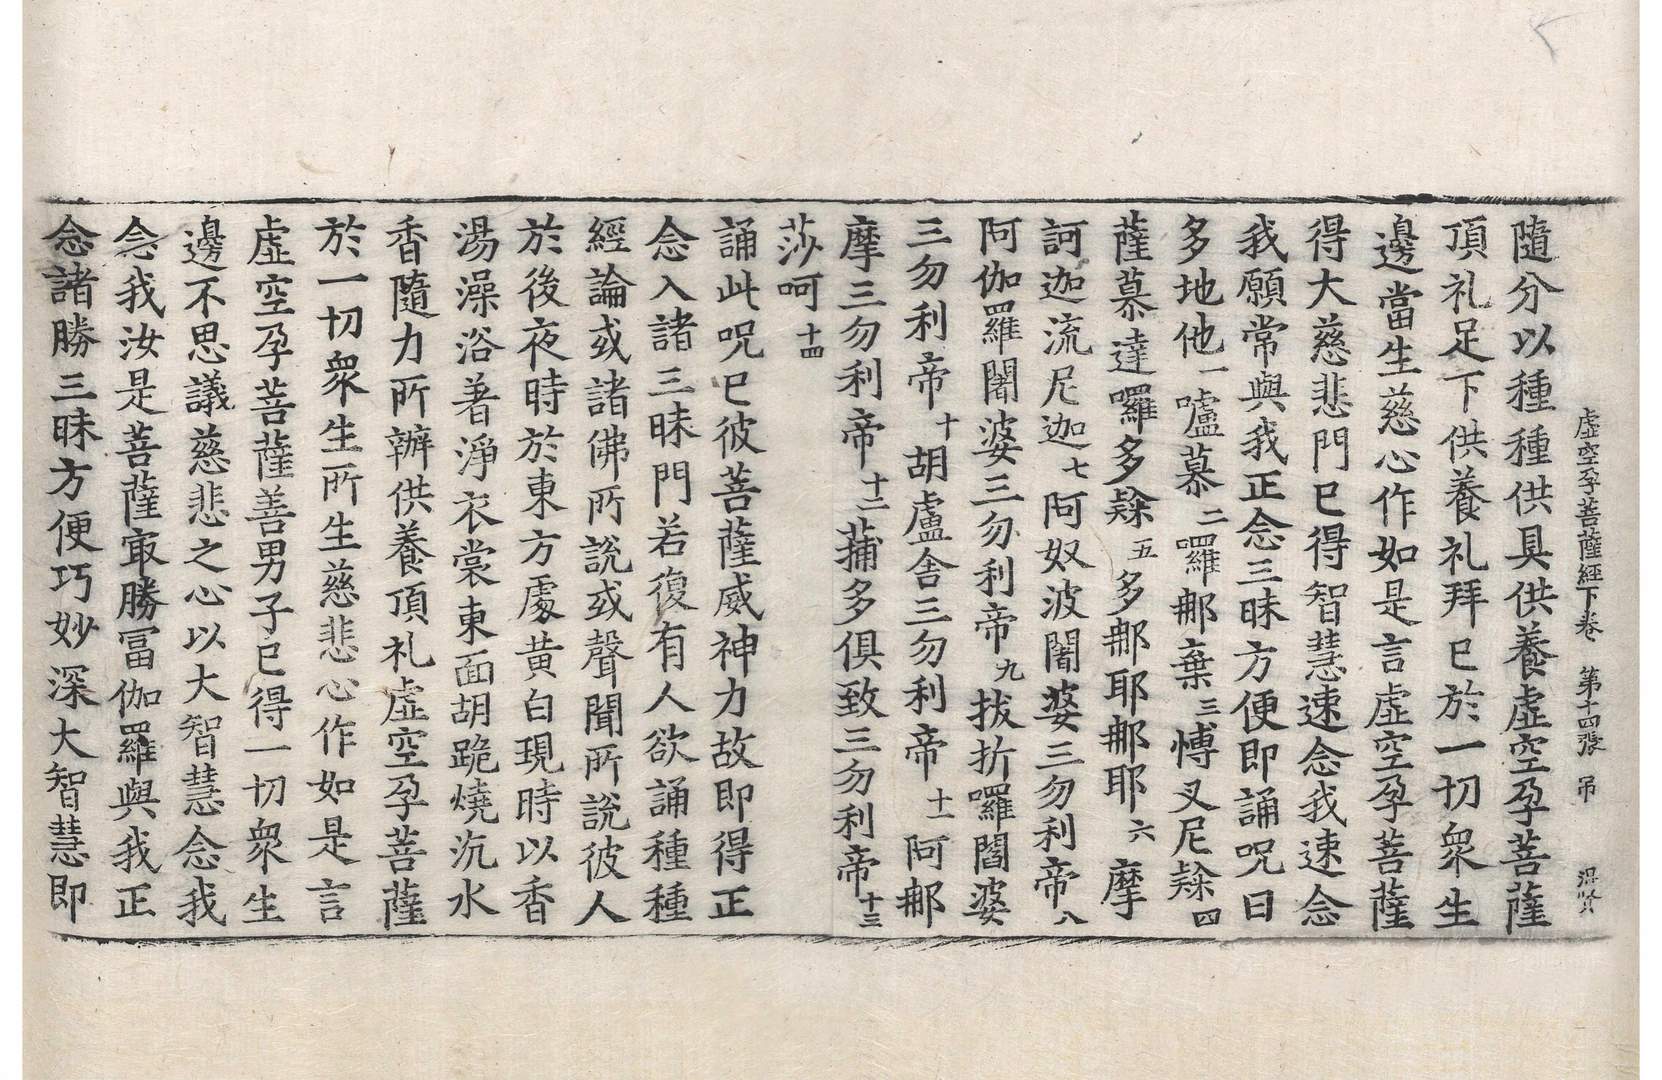 虛空孕菩薩經下卷 第十四張 吊 温賢
隨分以種種供具供養虛空孕菩薩
頂礼足下供養礼拜已於一切衆生
邊當生慈心作如是言虛空孕菩薩
得大慈悲門已得智慧速念我速念
我願常與我正念三昧方便即誦呪曰
多地他一嚧慕二囉郍棄三愽叉尼𨅖四
薩慕達囉多𨅖五多郍耶郍耶六摩
訶迦流尼迦七阿奴波闍婆三勿利帝八
阿伽羅闍婆三勿利帝九拔折囉闍婆
三勿利帝十胡盧舍三勿利帝十一阿郍
摩三勿利帝十二蒱多俱致三勿利帝十三
莎呵十四
誦此呪已彼菩薩威神力故即得正
念入諸三昧門若復有人欲誦種種
經論或諸佛所説或聲聞所説彼人
於後夜時於東方處黄白現時以香
湯澡浴著淨衣裳東面胡跪燒沉水
香隨力所辦供養頂礼虛空孕菩薩
於一切衆生所生慈悲心作如是言
虛空孕菩薩善男子已得一切衆生
邊不思議慈悲之心以大智慧念我
念我汝是菩薩㝡勝冨伽羅與我正
念諸勝三昧方便巧妙深大智慧即